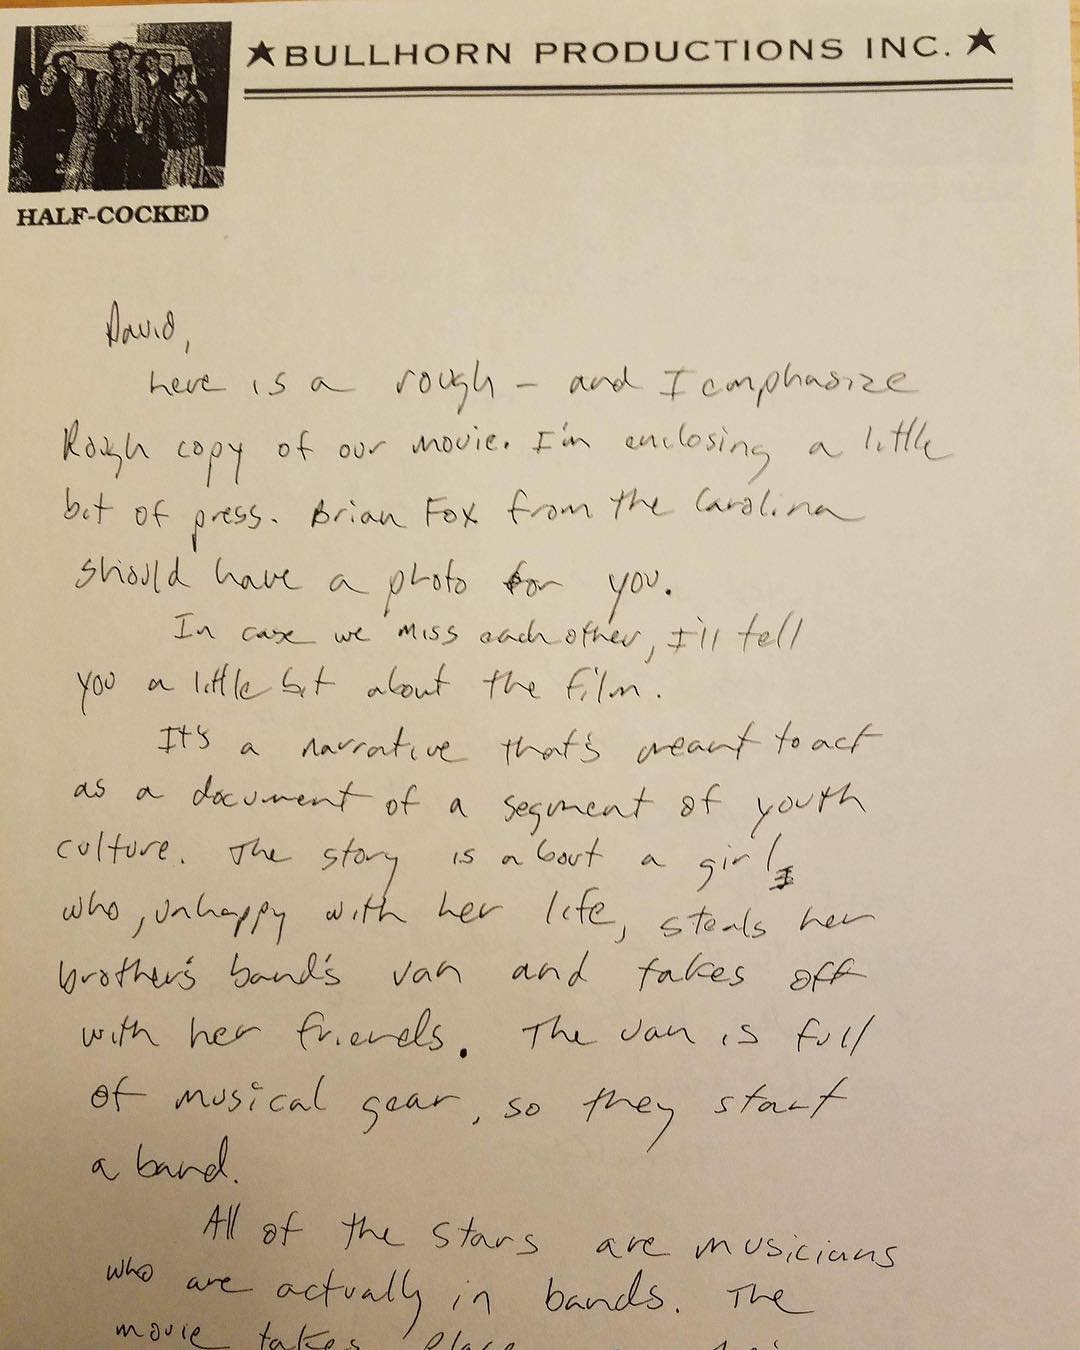 ★BULLHORN PRODUCTIONS INC.★
HALF-COCKED
David,
here is a rough - and I emphasize
Rough copy of our movie. I'm enclosing a little
bit of press. Brian Fox from the Carolina
should have a photo for you.
In case we miss each other, I'll tell
you a little bit about the film.
It's a narrative that's meant to act
as a document of a segment of youth
culture. The story is about a girl
who, unhappy with her life, steals her
brother's band's van and takes off
with her friends. The van is full
of musical gear, so they start
a band.
All of the stars are musicians
who are actually in bands. The
movie takes place